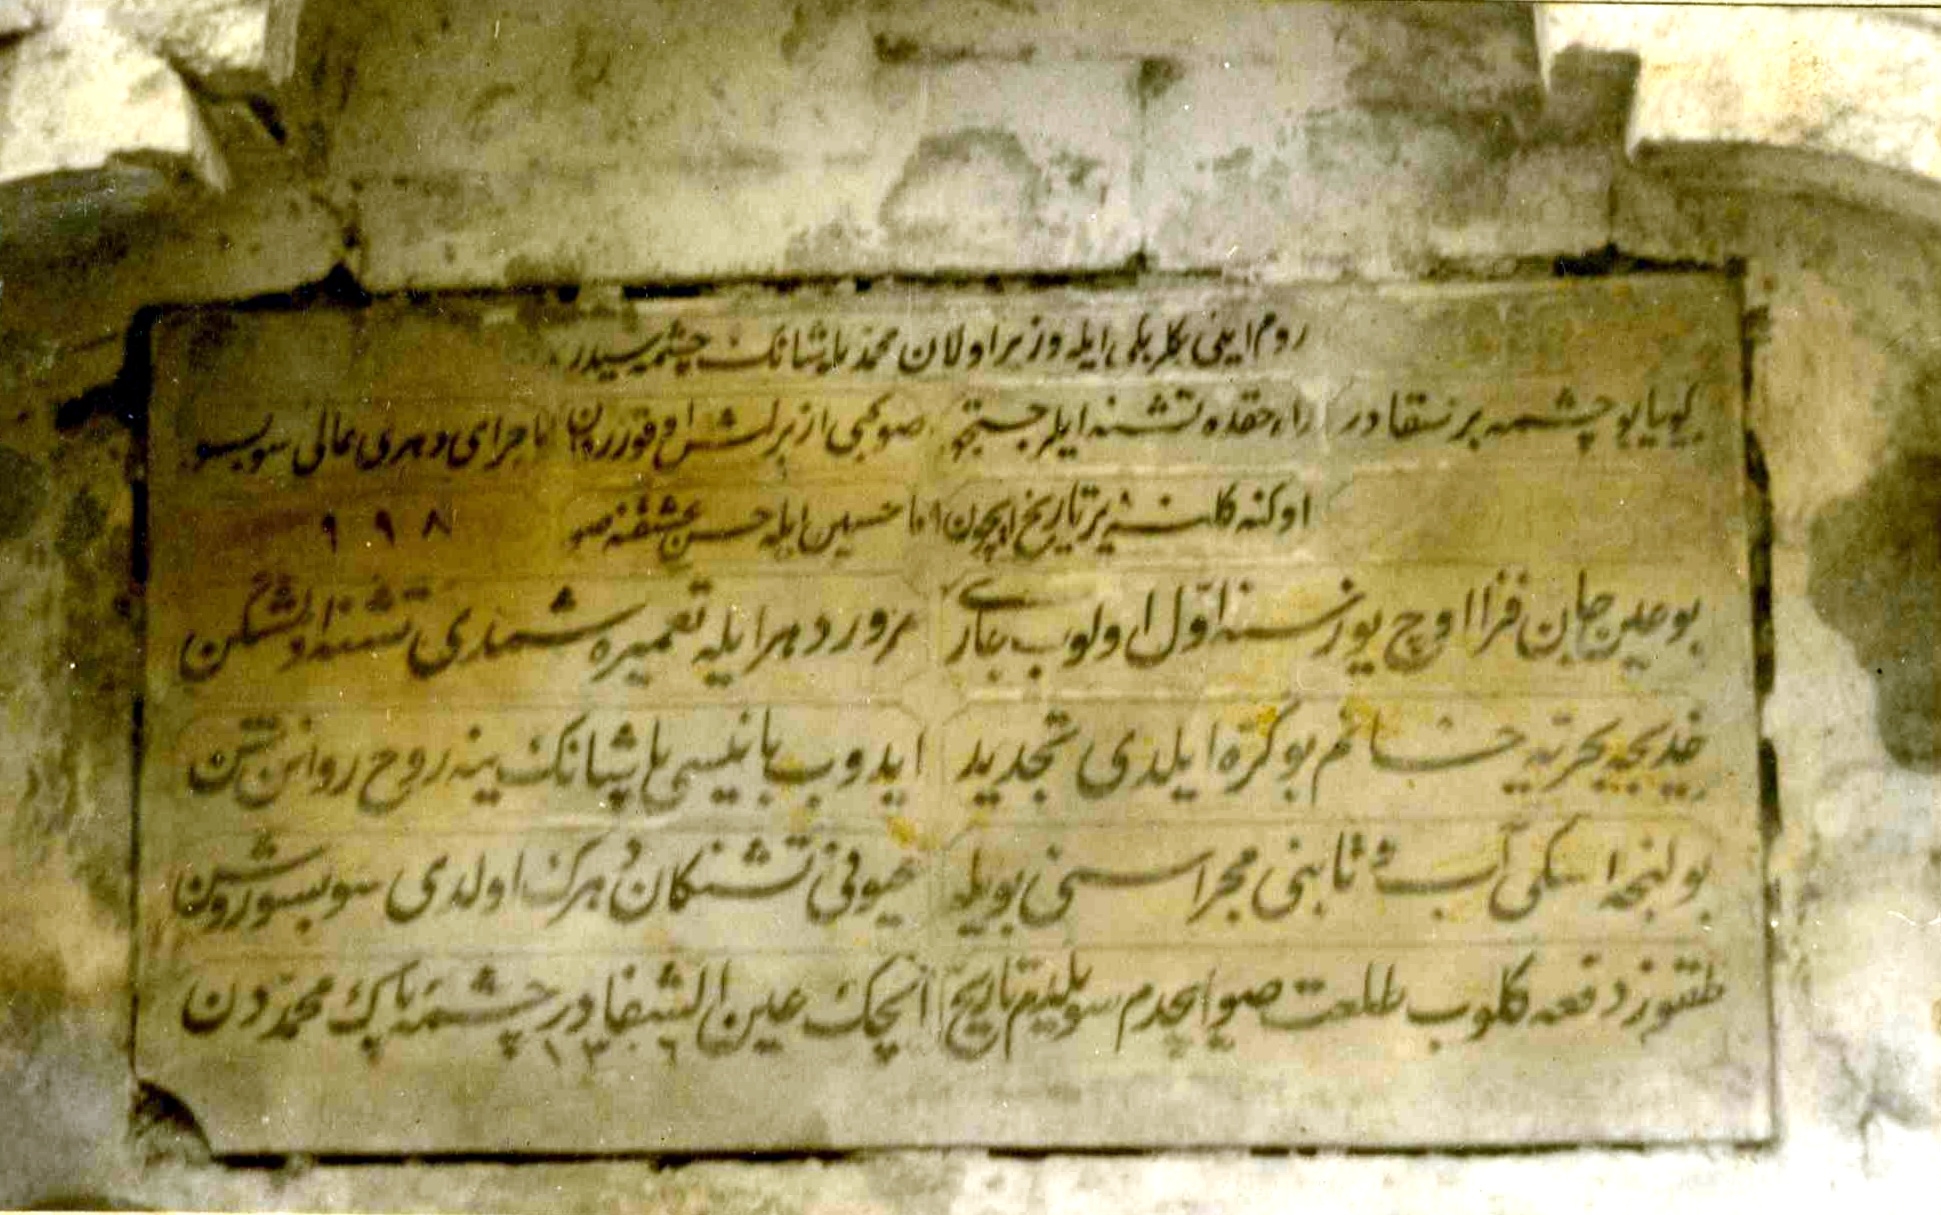 روم ايلى بكلربكى ايله وزير اولان محمد پاشانك چشمه سيدر
كويا بو چشمه بر سقادر راه حقده تشنه ايلر جستجو صو كبى از بر لسش اوقور روان ماجراى دهرى عالى سو بسو
اوكنه كلنشير تاريخ ايچون اما حسين ايله حسن عشقنه صو ٩٩٨
بو عين جان فزا اوچ يوز سنه اول اولوب جارى مرور دهر ايله تعميره شمدى تشنه ايدشكن
خديجه بحريه خانم بو كره ايلدى تجديد ايدوب بانيسى پاشانك ينه روح روانن شن
بولنجه اسكى آب ثابنى مجراسنى بويله عيونى تشنكان دهرك اولدى سو بسو روشن
طقوز دفعه كلوب طلعت صو ايچدم سويلدم تاريخ ايچمك عين الشفادر چشمه پاك محمددن
١٣٠٦